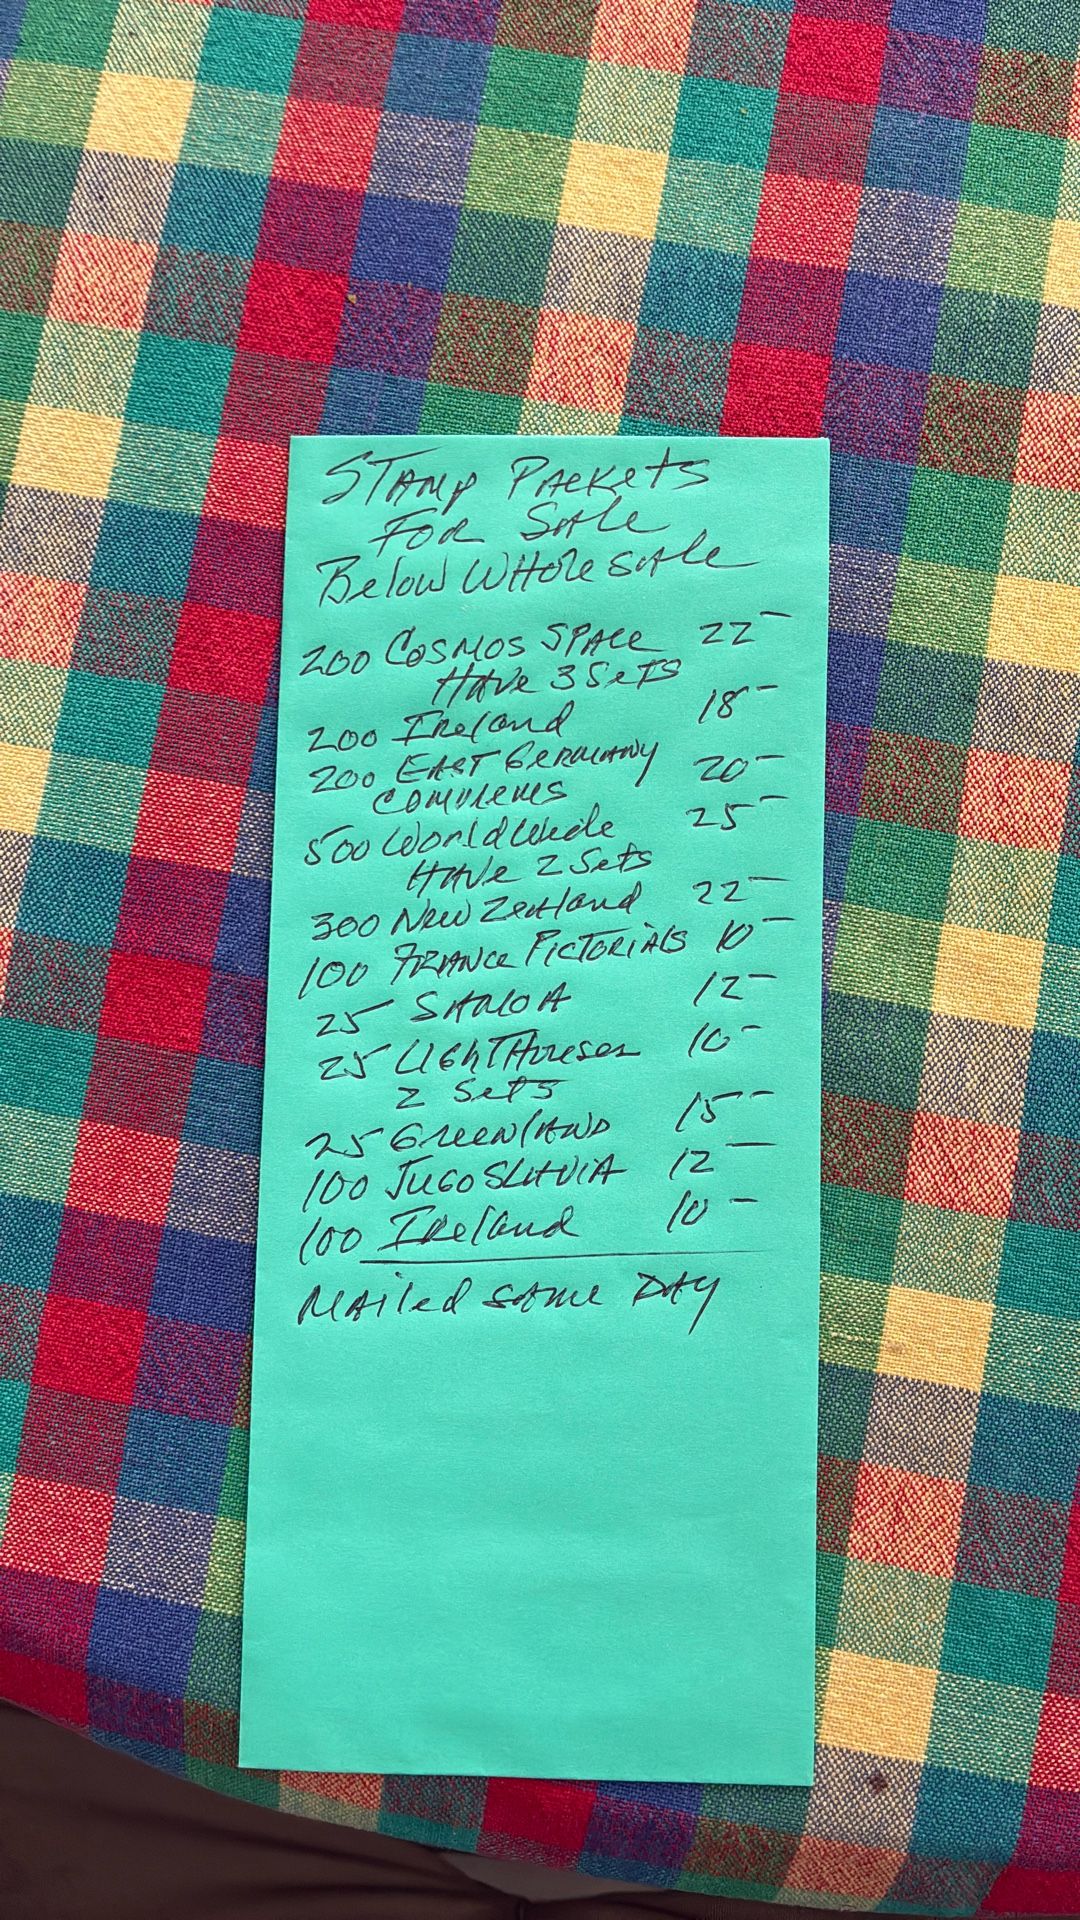 Stamp Packets
For Sale
Below Wholesale
200 Cosmos Space 22-
Have 3 Sets
200 Ireland 18-
200 East Germany 20-
Commems
500 Worldwide 25-
Have 2 Sets
300 New Zealand 22-
100 France Pictorials 10-
25 Samoa 12-
25 Lighthouses 10-
2 Sets
25 Greenland 15-
100 Jugoslavia 12-
100 Ireland 10-
Mailed same Day